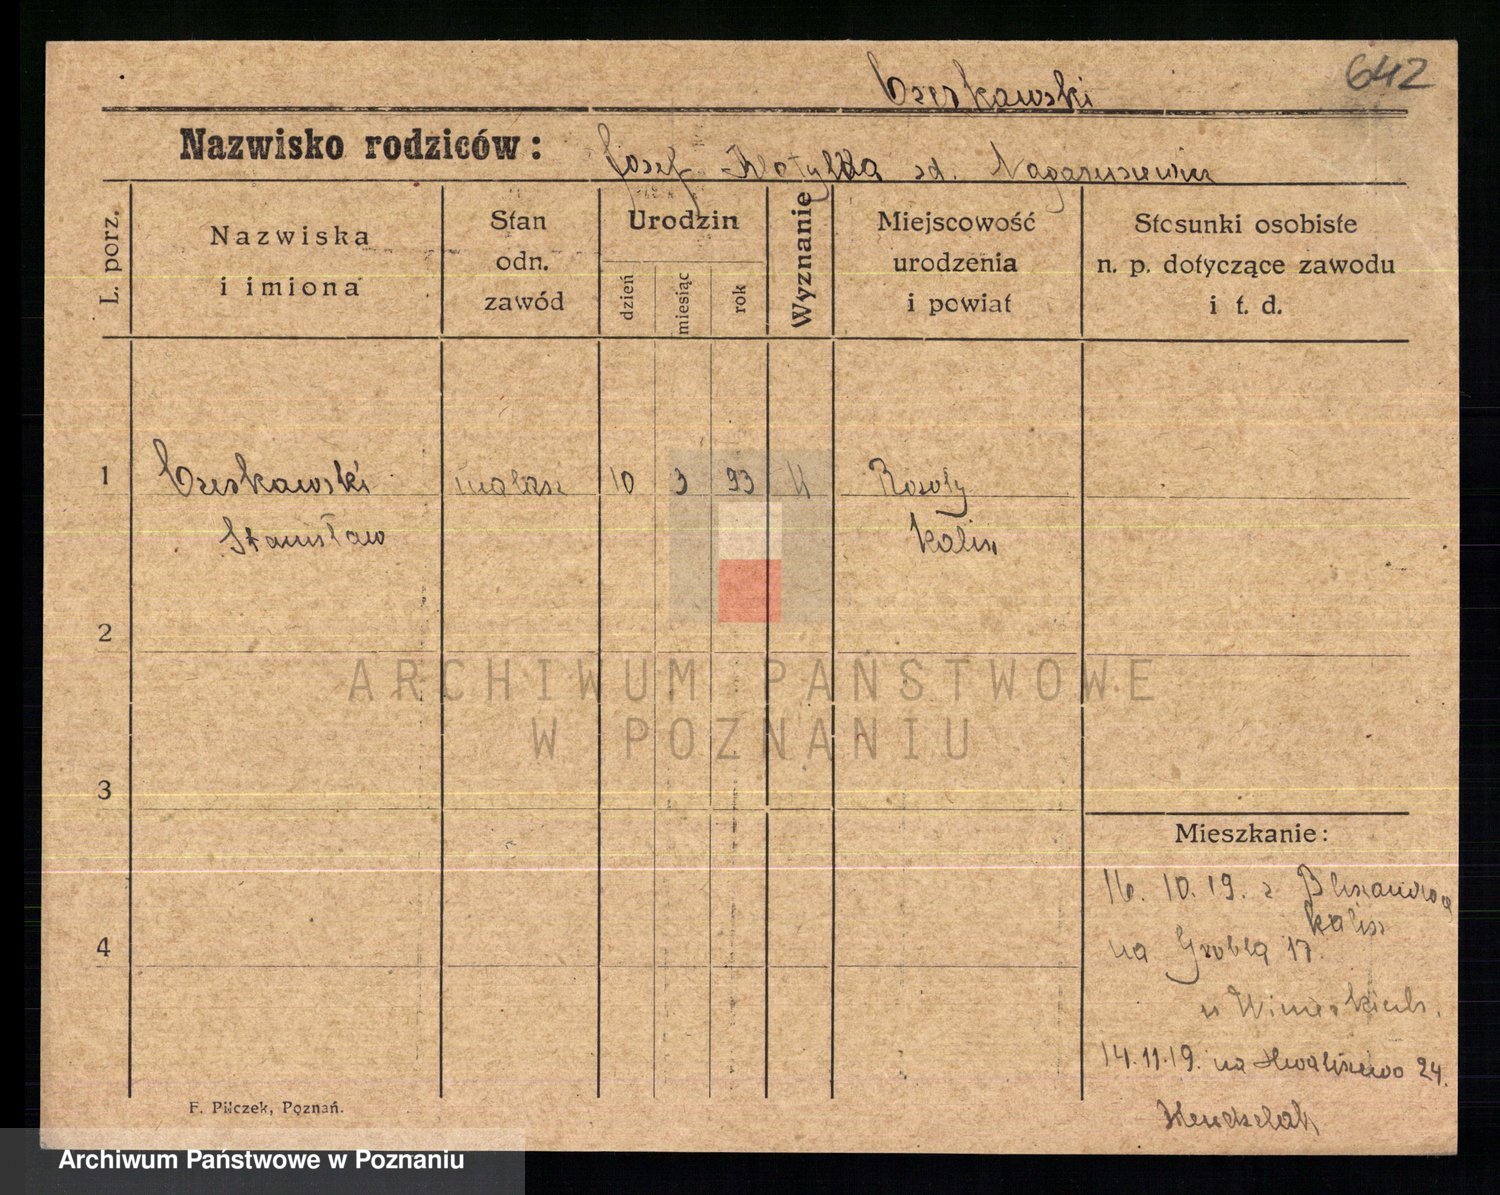 642
Czerkawski
Nazwisko rodziców:
Józef Matylda zd.
L. porz.
Nazwiska
i imiona
Stan
odn.
zawód
Urodzin
dzień
miesiąc
rok
Wyznanie
Miejscowość
urodzenia
i powiat
Stosunki osobiste
n. p. dotyczące zawodu
i t. d.
1
Czerkawski
malarz
10
3
93
Rosoły
Stanisław
Kalisz
2
ARCHIWUM PAŃSTWOWE
W POZNANIU
3
Mieszkanie:
16. 10. 19. z
Kalisz
na Groblą 17.
4
u
14.11.19. na Chwaliszewo 24.
F. Pilczek, Poznań.
Archiwum Państwowe w Poznaniu